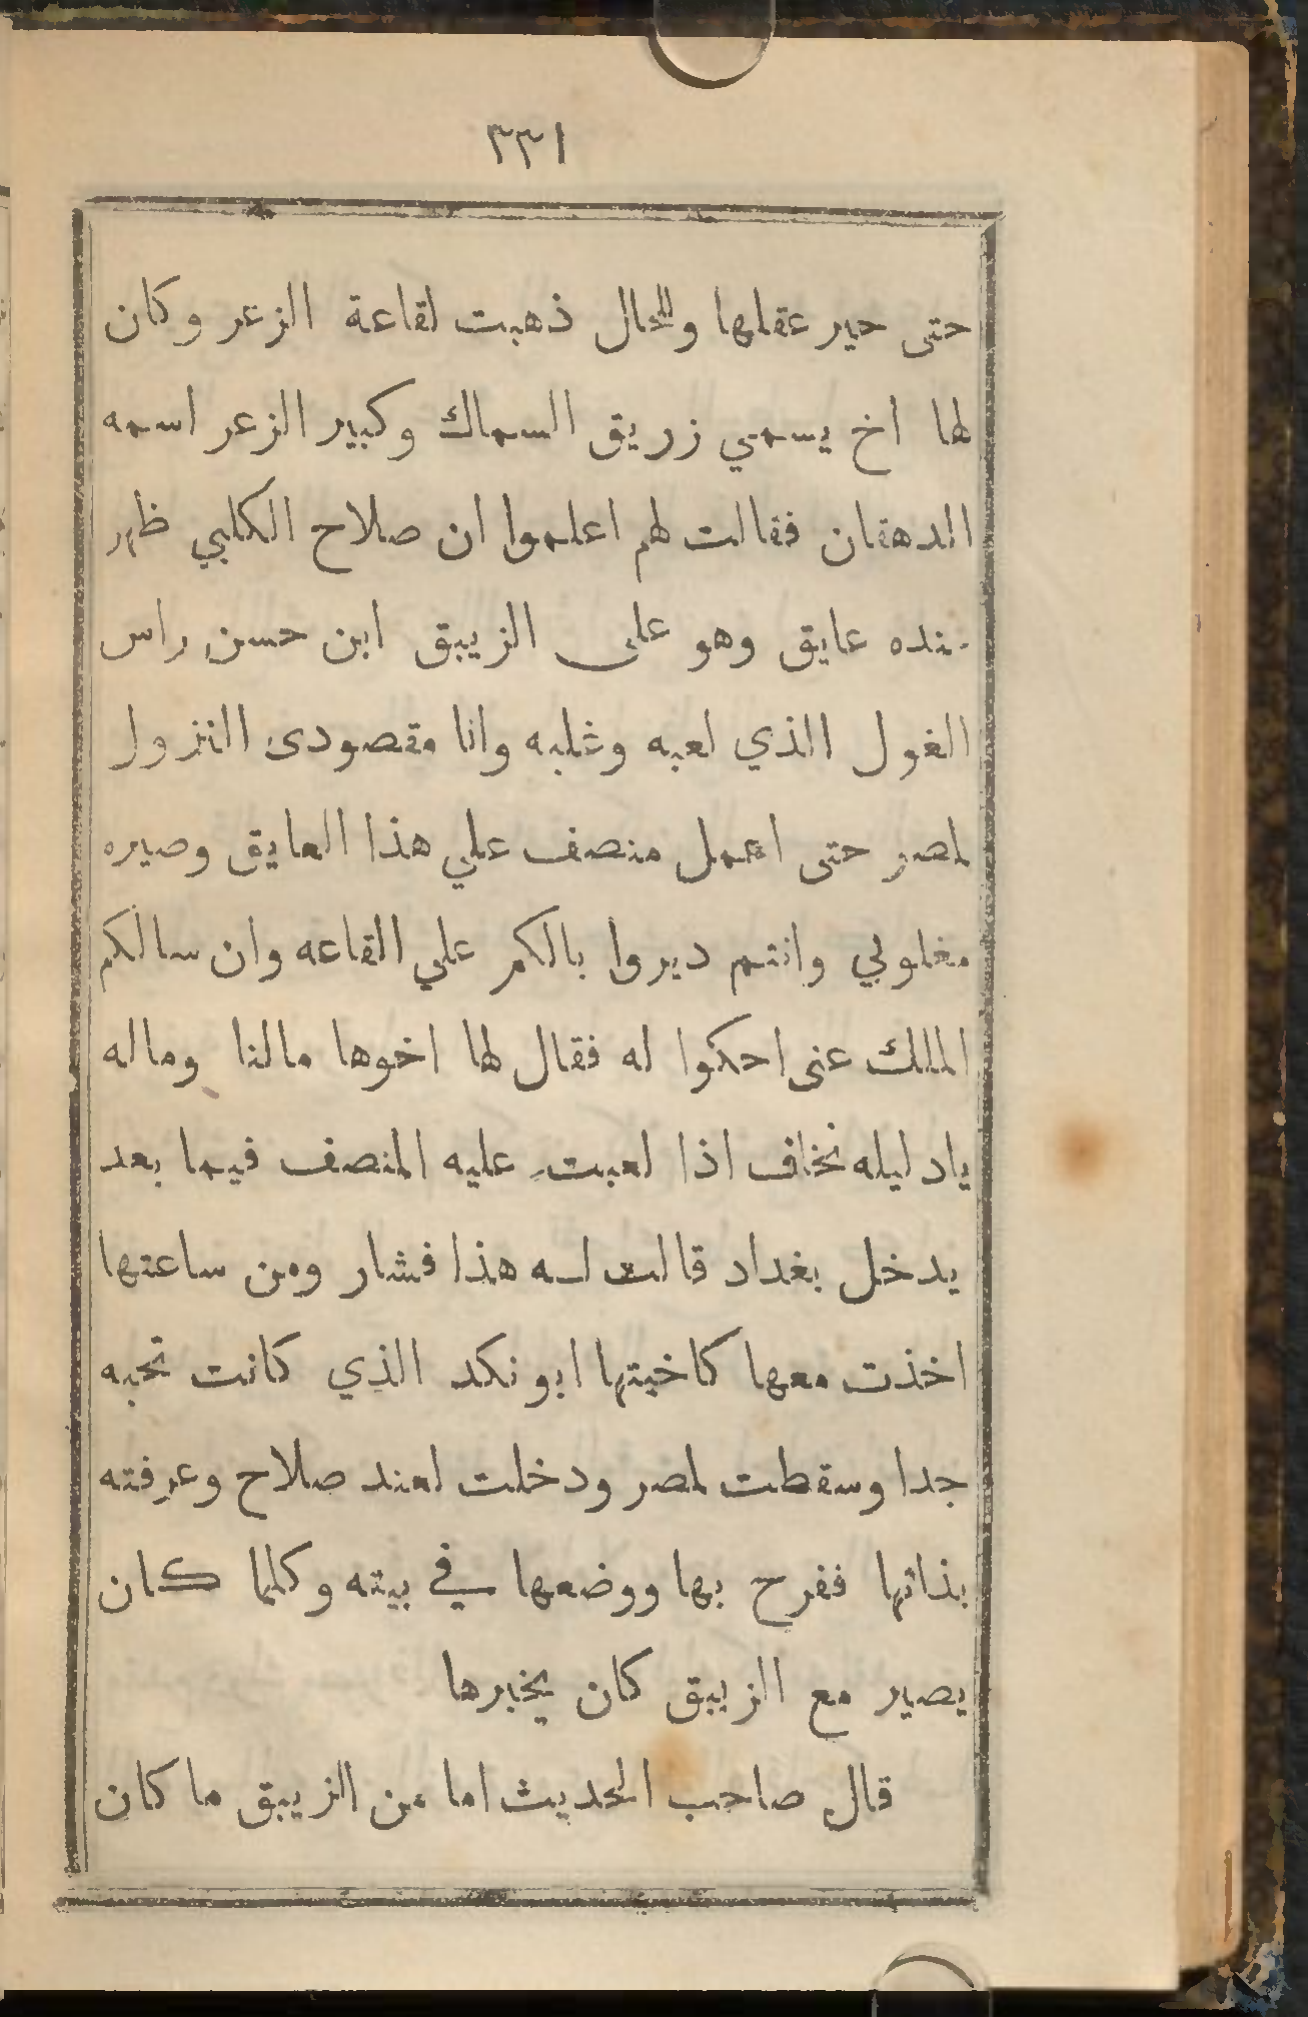 ٣٣١
حتى حير عقلها وللحال ذهبت لقاعة الزعر وكان
لها اخ يسمي زريق السماك وكبير الزعر اسمه
الدهقان فقالت لهم اعلموا ان صلاح الكلبي ظهر
عنده عايق وهو على الزيبق ابن حسن راس
الغول الذي لعبه وغلبه وانا مقصودى النزول
لمصر حتى اعمل منصف علي هذا العايق وصيره
مغلوبي وانتم ديروا بالكم علي القاعه وان سالكم
الملك عنى احكوا له فقال لها اخوها مالنا وماله
يادليله نخاف اذا لعبت عليه المنصف فيما بعد
يدخل بغداد قالت له هذا فشار ومن ساعتها
اخذت معها كاخيتها ابو نكد الذي كانت تحبه
جدا وسقطت لمصر ودخلت لعند صلاح وعرفته
بذاتها ففرح بها ووضعها في بيته وكلما كان
يصير مع الزيبق كان يخبرها
قال صاحب الحديث اما من الزيبق ما كان